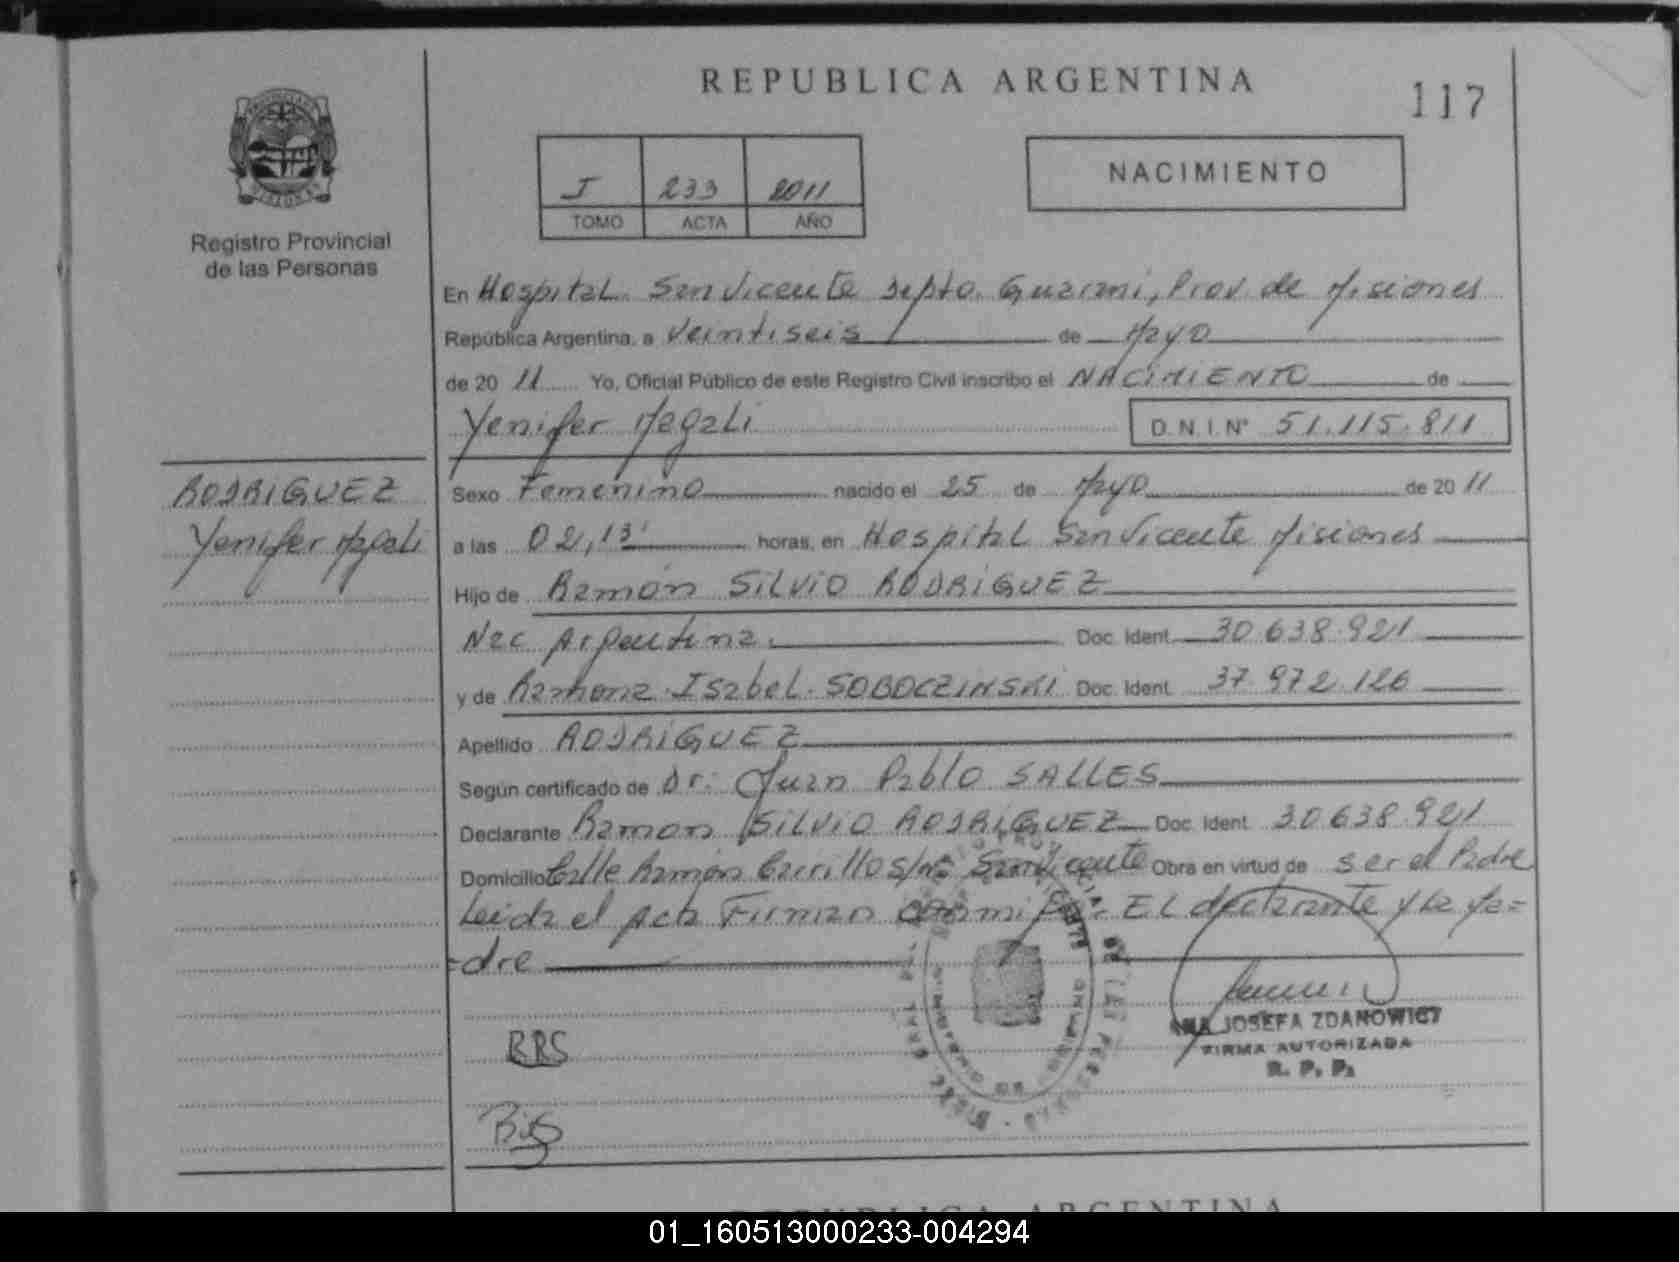 REPUBLICA ARGENTINA
117
Registro Provincial
de las Personas
I 233 2011
TOMO ACTA AÑO
NACIMIENTO
En Hospital San Vicente Depto. Guarani, Prov. de Misiones
República Argentina, a veintiseis de Mayo
de 20 11 Yo, Oficial Público de este Registro Civil inscribo el NACIMIENTO de
Yenifer Magali D.N.I.N° 51.115.811
RODRIGUEZ
Yenifer Magali
Sexo Femenino nacido el 25 de Mayo de 20 11
a las 02,13' horas, en Hospital San Vicente Misiones
Hijo de Ramón Silvio RODRIGUEZ
Nac Argentina. Doc. Ident. 30.638.921
y de Ramona Isabel SOBOCZINSKI Doc. Ident. 37.972.126
Apellido RODRIGUEZ
Según certificado de Dr: Juan Pablo SALLES
Declarante Ramon Silvio RODRIGUEZ Doc. Ident. 30.638.921
Domicilio Calle Ramón Carrillo s/nº San Vicente Obra en virtud de ser el Padre
Leida el Acta Firman El declarante y la Ma=
=dre
RRS
ANA JOSEFA ZDANOWICZ
FIRMA AUTORIZADA
R. P. P.
REPUBLICA ARGENTINA
01_160513000233-004294